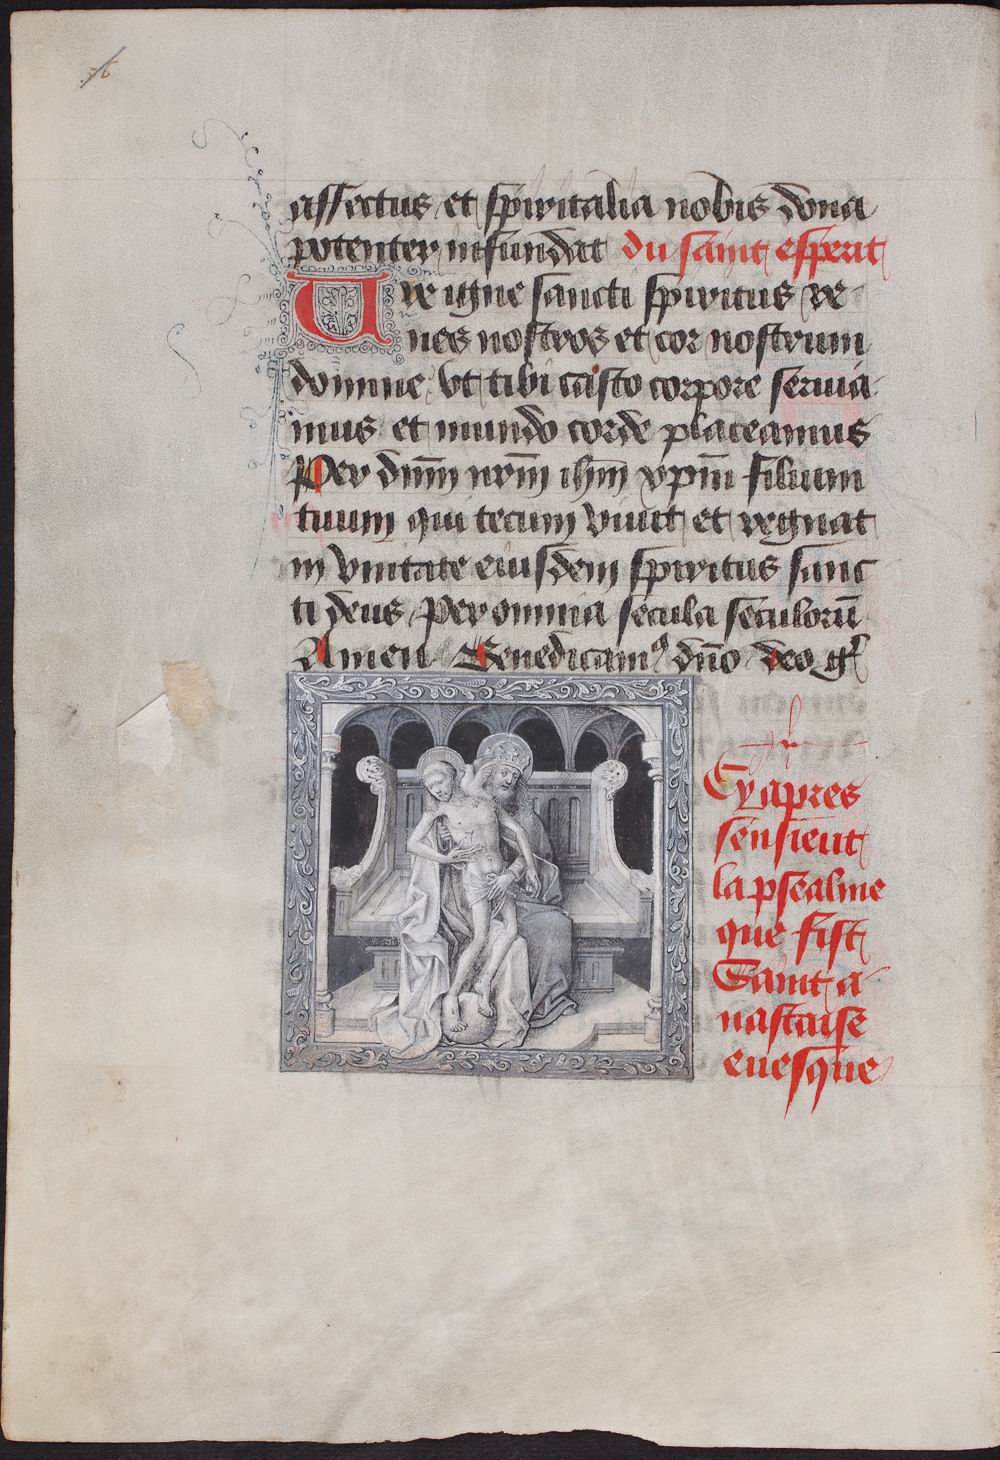 36
affectus et spiritalia nobis dona
potenter infundat du saint esperit
Ure igne sancti spiritus re
nes nostros et cor nostrum
domine vt tibi casto corpore seruia
mus et mundo corde placeamus
Per dnm nrm ihm xpm filium
tuum qui tecum viuit et regnat
in vnitate eiusdem spiritus sanc
ti deus per omnia secula seculorū
Amen Benedicam9 dno deo gr
Cy apres
sensieut
la psealme
que fist
Saint a
nastaise
euesque